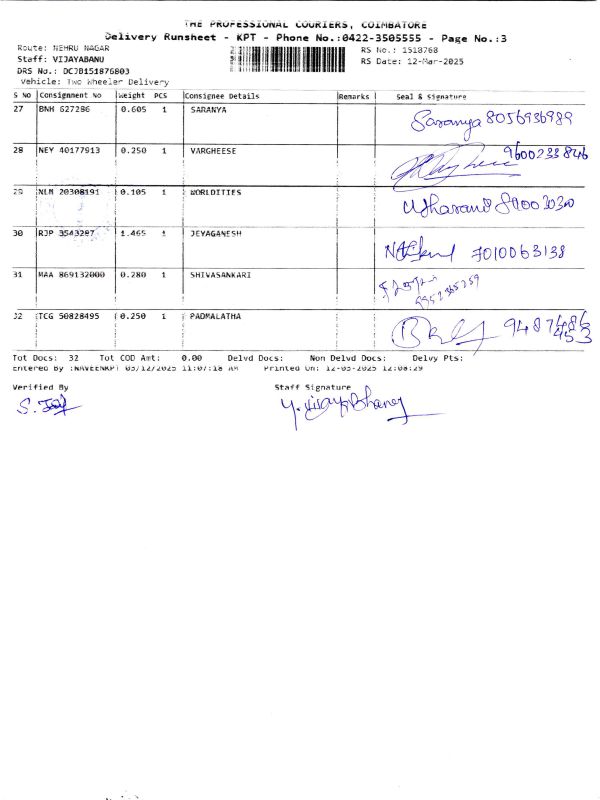 THE PROFESSIONAL COURIERS, COIMBATORE
Delivery Runsheet - KPT - Phone No.:0422-3505555 - Page No.:3
Route: NEHRU NAGAR
Staff: VIJAYABANU
DRS No.: DCJB151876803
Vehicle: Two Wheeler Delivery
RS No.: 1518768
RS Date: 12-Mar-2025
S No Consignment No Weight PCS Consignee Details Remarks Seal & Signature
27 BNH 627286 0.605 1 SARANYA Saranya 8056936989
28 NEY 40177913 0.250 1 VARGHEESE 9600233846
29 NLM 20308191 0.105 1 WORLDITIES
30 RJP 3543287 1.465 1 JEYAGANESH 7010063138
31 MAA 869132000 0.280 1 SHIVASANKARI
32 TCG 50828495 0.250 1 PADMALATHA 9487486
453
Tot Docs: 32 Tot COD Amt: 0.00 Delvd Docs: Non Delvd Docs: Delvy Pts:
Entered By :NAVEENKPT 03/12/2025 11:07:18 AM Printed On: 12-03-2025 12:08:29
Verified By Staff Signature